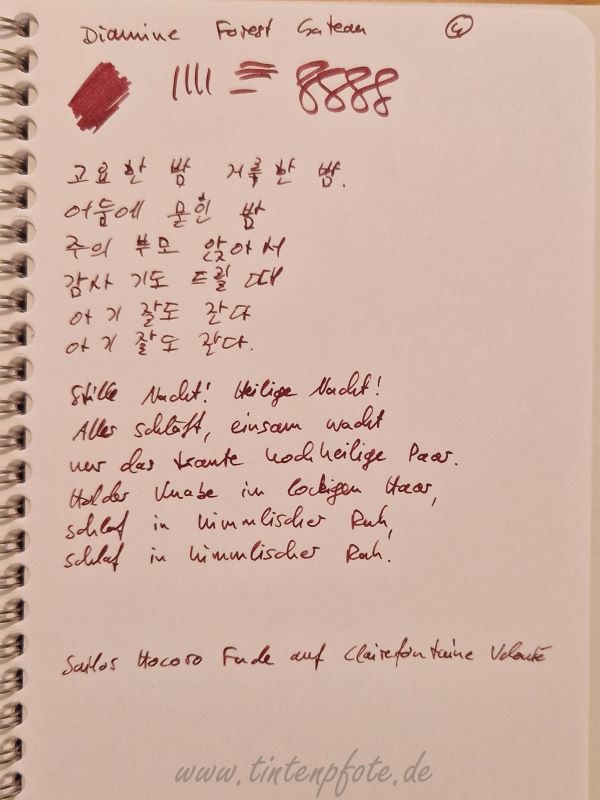 Diamine Forest Gateau 4
고요한 밤 거룩한 밤.
어둠에 묻힌 밤
주의 부모 앉아서
감사 기도 드릴 때
아기 잘도 잔다
아기 잘도 잔다.
Stille Nacht! Heilige Nacht!
Alles schläft, einsam wacht
nur das traute hochheilige Paar.
Holder Knabe im lockigen Haar,
schlaf in himmlischer Ruh,
schlaf in himmlischer Ruh.
Sailor Hocoro Fude auf Clairefontaine Velouté
www.tintenpfote.de